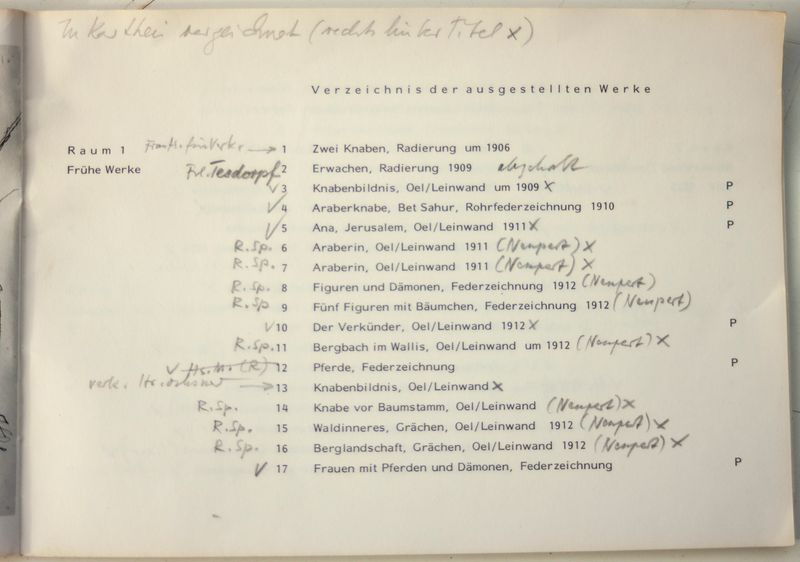 In Karthei verzeichnet (rechts hinter Titel x)
Verzeichnis der ausgestellten Werke
Raum 1 → 1 Zwei Knaben, Radierung um 1906
Frühe Werke Frl. Tesdorpf 2 Erwachen, Radierung 1909 abgeholt
√ 3 Knabenbildnis, Oel/Leinwand um 1909 x P
√ 4 Araberknabe, Bet Sahur, Rohrfederzeichnung 1910 P
√ 5 Ana, Jerusalem, Oel/Leinwand 1911 x P
R.Sp. 6 Araberin, Oel/Leinwand 1911 (Neupert) x
R.Sp. 7 Araberin, Oel/Leinwand 1911 (Neupert) x
R.Sp. 8 Figuren und Dämonen, Federzeichnung 1912 (Neupert)
R.Sp 9 Fünf Figuren mit Bäumchen, Federzeichnung 1912 (Neupert)
√ 10 Der Verkünder, Oel/Leinwand 1912 x P
R.Sp. 11 Bergbach im Wallis, Oel/Leinwand um 1912 (Neupert) x
√ 12 Pferde, Federzeichnung P
verk. → 13 Knabenbildnis, Oel/Leinwand x
R.Sp. 14 Knabe vor Baumstamm, Oel/Leinwand (Neupert) x
R.Sp. 15 Waldinneres, Grächen, Oel/Leinwand 1912 (Neupert) x
R.Sp. 16 Berglandschaft, Grächen, Oel/Leinwand 1912 (Neupert) x
√ 17 Frauen mit Pferden und Dämonen, Federzeichnung P